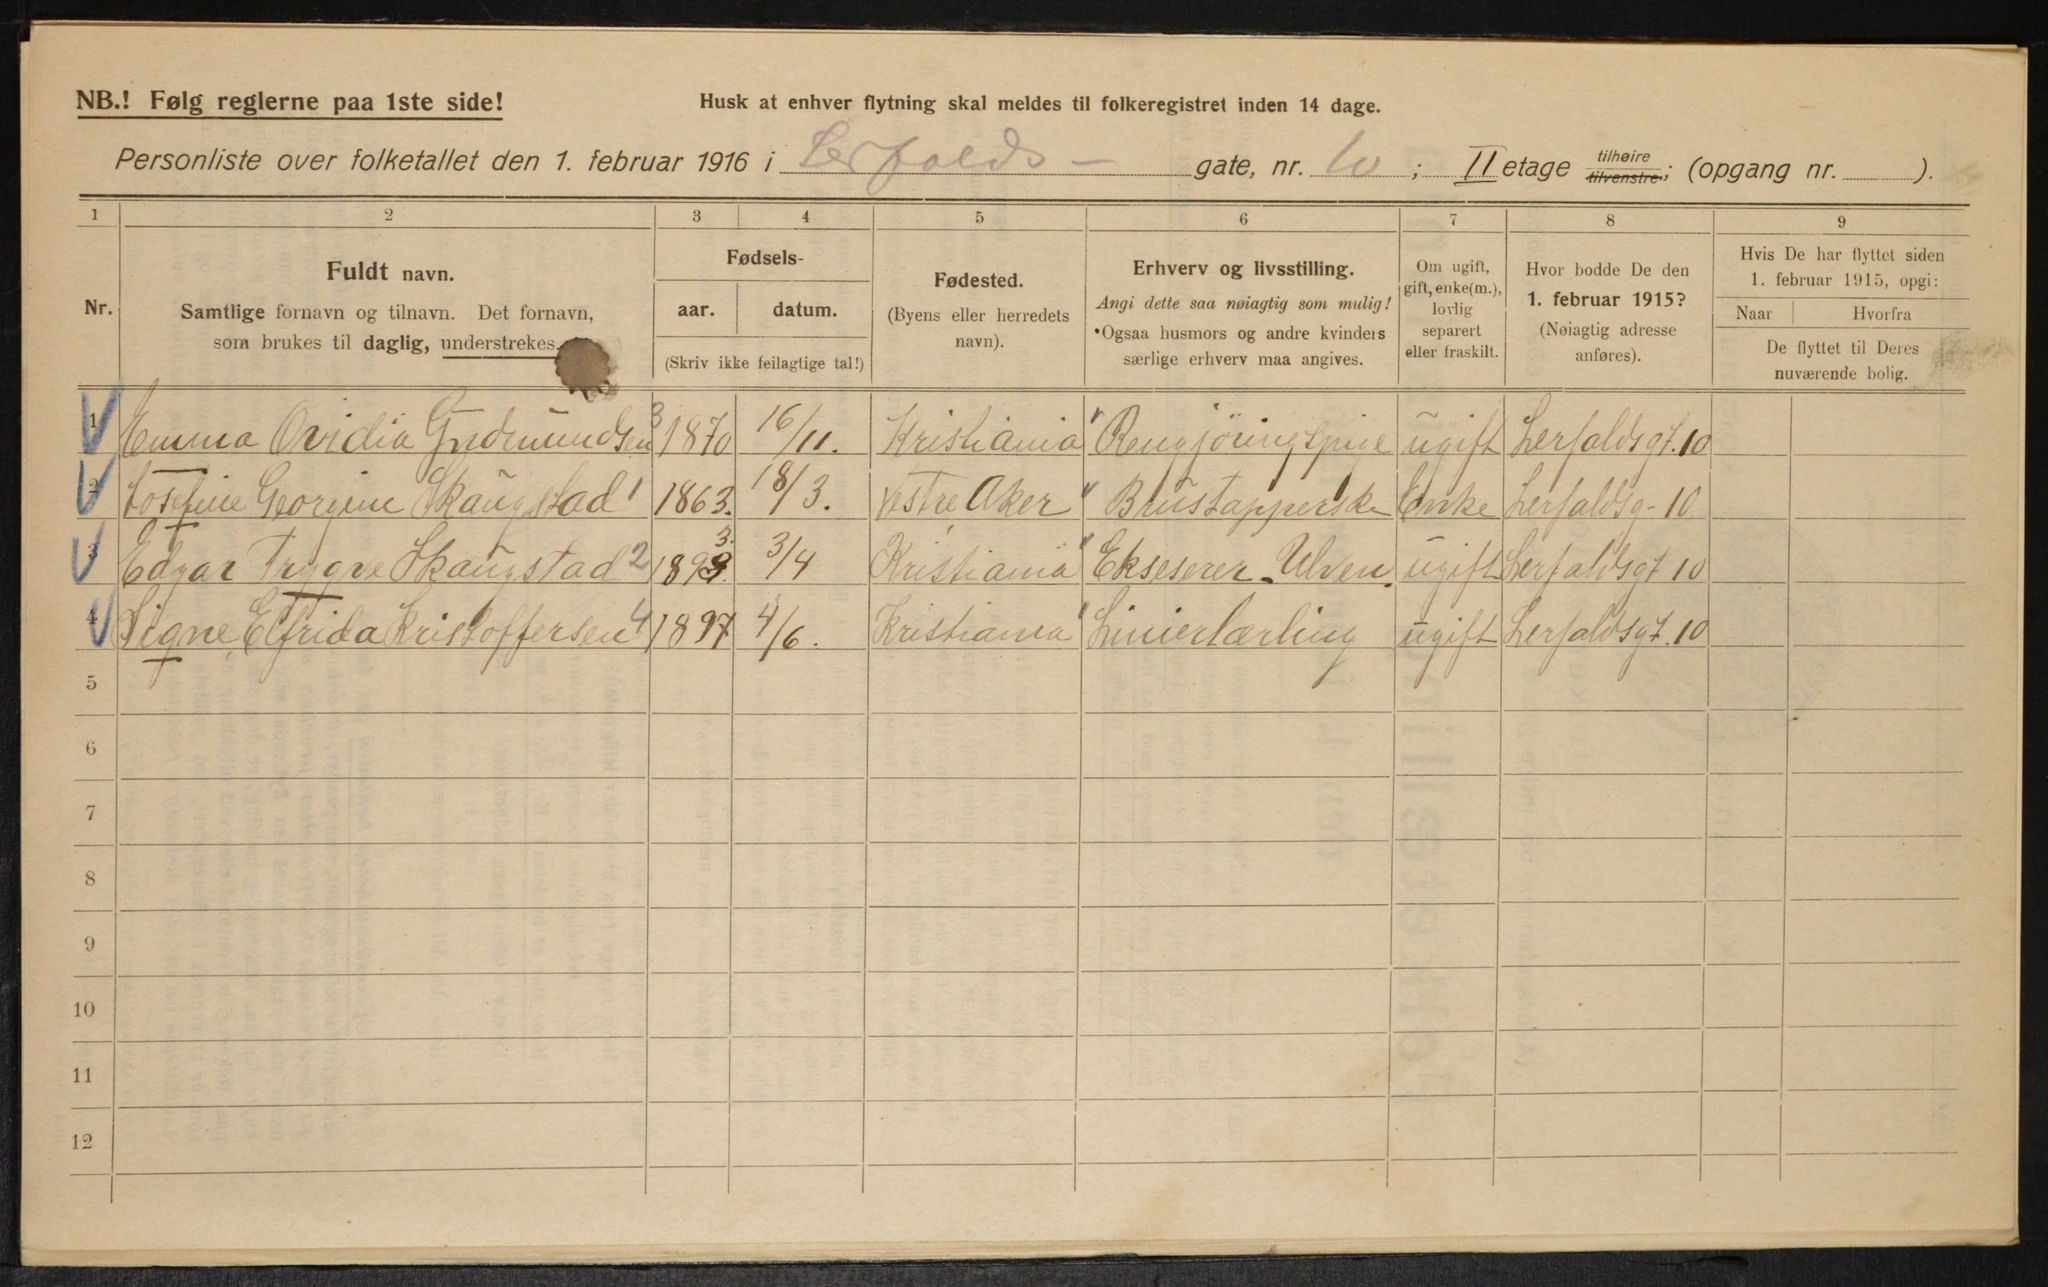 NB.! Følg reglerne paa 1ste side!
Husk at enhver flytning skal meldes til folkeregistret inden 14 dage.
Personliste over folketallet den 1. februar 1916 i Lerfalds - gate, nr. 10; II etage tilhøire tilvenstre; (opgang nr. ).
1 2 3 4 5 6 7 8 9
Nr.
Fuldt navn.
Samtlige fornavn og tilnavn. Det fornavn,
som brukes til daglig, understrekes.
Fødsels-
aar. datum.
(Skriv ikke feilagtige tal!)
Fødested.
(Byens eller herredets
navn).
Erhverv og livsstilling.
Angi dette saa nøiagtig som mulig!
•Ogsaa husmors og andre kvinders
særlige erhverv maa angives.
Om ugift,
gift, enke(m.),
lovlig
separert
eller fraskilt.
Hvor bodde De den
1. februar 1915?
(Nøiagtig adresse
anføres).
Hvis De har flyttet siden
1. februar 1915, opgi:
Naar Hvorfra
De flyttet til Deres
nuværende bolig.
1 Emma Ovidia Gudmundsen 3 1870 16/11. Kristiania Rengjöringspige ugift Lerfaldsgt. 10
2 Josefine Georgine Skaugstad 1 1863. 18/3. Vestre Aker Brustapperske Enke Lerfaldsg- 10
3 Edgar Trygve Skaugstad 2 1899. 3. 3/4 Kristiania Ekseserer - Ulven. ugift Lerfaldsgt 10
4 Signe Elfrida Kristoffersen 4 1897 4/6. Kristiania Linierlærling ugift Lerfaldsgt. 10
5
6
7
8
9
10
11
12